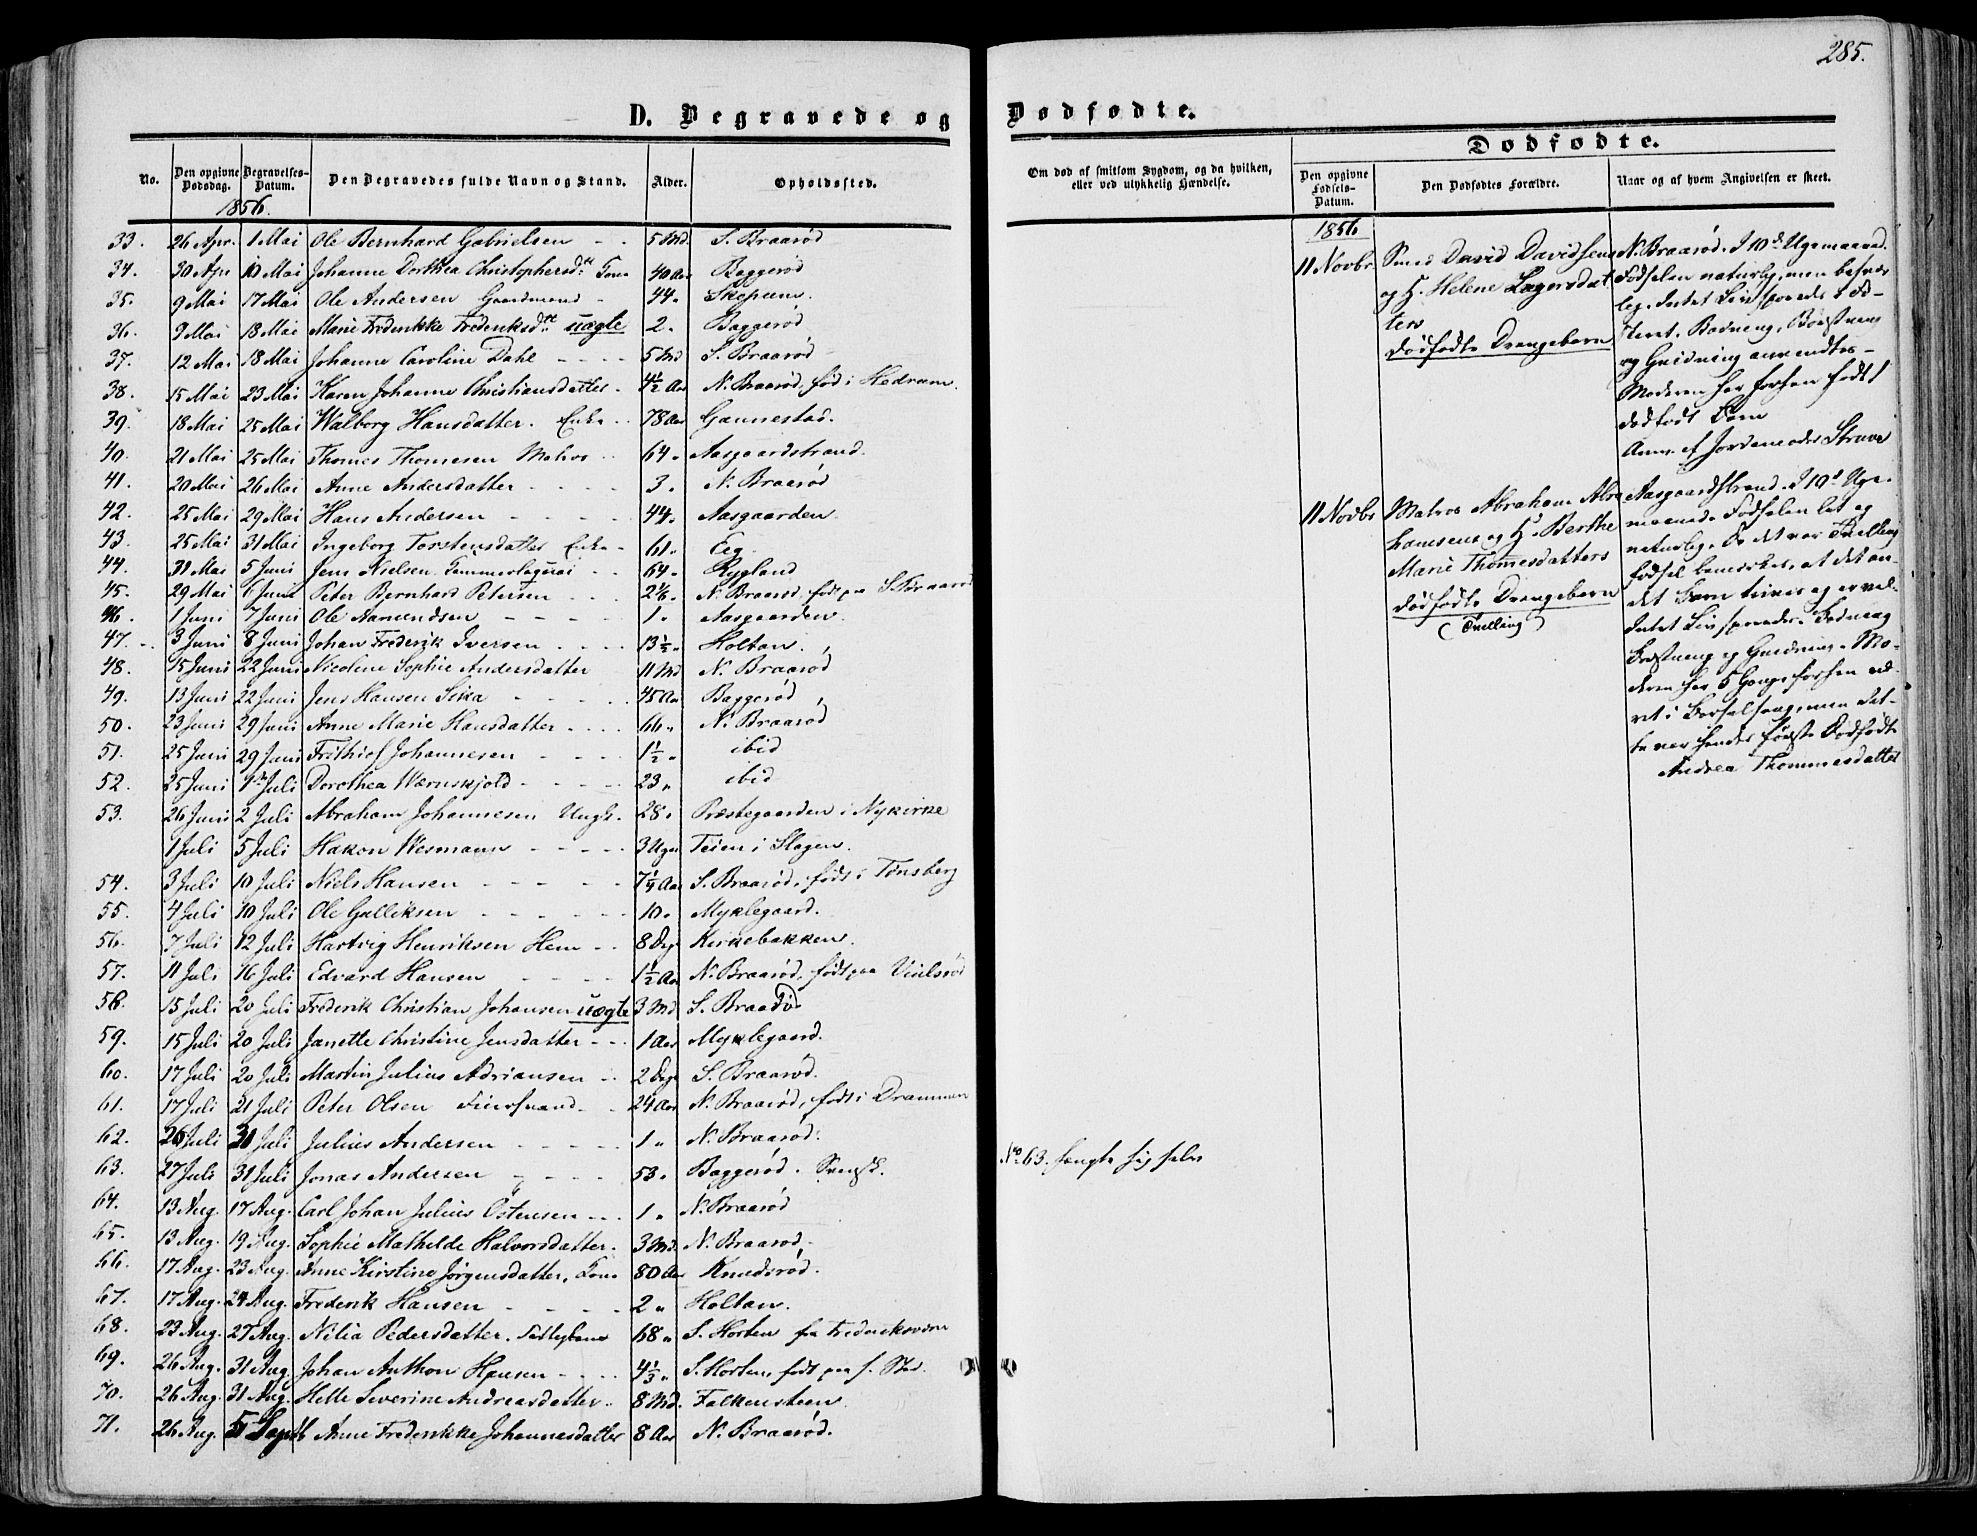 285.
D. Begravede og Dødfødte.
Dødfødte.
No.
Den opgivne Dødsdag.
Begravelses-Datum.
Den Begravedes fulde Navn og Stand.
Alder.
Opholdssted.
Om død af smitsom Sygdom, og da hvilken, eller ved ulykkelig Hændelse.
Den opgivne Fødsels-Datum.
Den Dødfødtes Forældre.
Naar og af hvem Angivelsen er skeet.
1856.
33. 26 Apr. 1 Mai Ole Bernhard Gabrielsen 5 Md. S. Braarød
34. 30 Apr 10 Mai Johanne Dorthea Christophersdtr Kone 40 Aar Baggerød
35. 9 Mai 17 Mai Ole Andersen Gaardmand 44 Skopum
36. 9 Mai 18 Mai Marie Frederikke Frederiksdtr uægte 2 Baggerød
37. 12 Mai 18 Mai Johanne Caroline Dahl 5 Md S. Braarød
38. 15 Mai 23 Mai Karen Johanne Christiansdatter 4½ Aar N. Braarød, fød i Hedrum.
39. 18 Mai 25 Mai Walborg Hansdatter. Enke 78 Aar Gannestad.
40. 21 Mai 25 Mai Thomes Thomesen Matros 64 Aasgaardstrand.
41. 20 Mai 26 Mai Anne Andersdatter 3 N. Braarød
42. 25 Mai 29 Mai Hans Andersen 44 Aasgaarden.
43. 25 Mai 31 Mai Ingeborg Torstensdatter Enke 61 Eeg.
44. 31 Mai 5 Juni Jens Nielsen 64 Rygland
45. 29 Mai 6 Juni Peter Bernhard Petersen N. Braarød, født paa S. Braarød
46. 1 Juni 7 Juni Ole Aamundsen 1 Aasgaarden.
47. 3 Juni 8 Juni Johan Frederik Iversen 13½ Holtan.
48. 15 Juni 22 Juni Nicoline Sophie Andersdatter 11 Md N. Braarød
49. 13 Juni 22 Juni Jens Hansen 45 Aar Baggerød
50. 23 Juni 29 Juni Anne Marie Hansdatter 66 N. Braarød
51. 25 Juni 29 Juni Frithiof Johannesen 1½ ibid
52. 25 Juni 1ste Juli Dorothea Wærnskjold 23 ibid
53. 26 Juni 2 Juli Abraham Johannesen Ungk. 28 Præstegaarden i Nykirke
1 Juli 5 Juli Hakon Wesmann 3 Uger Teien i Slagen.
54. 3 Juli 10 Juli Niels Hansen 7¼ Aar S. Braarød, født i Tønsberg
55. 4 Juli 10 Juli Ole Gulliksen 10 Myklegaard.
56. 7 Juli 12 Juli Hartvig Henriksen Hem 8 Dage Kirkebakken.
57. 11 Juli 16 Juli Edvard Hansen 1½ Aar N. Braarød, født paa
58. 15 Juli 20 Juli Frederik Christian Johansen uægte 3 Md S. Braarød
59. 15 Juli 20 Juli Janette Christine Jensdatter 1 Aar Myklegaard.
60. 17 Juli 20 Juli Martin Julius Adriansen 2 Dage S. Braarød.
61. 17 Juli 21 Juli Peter Olsen 24 Aar N. Braarød, født i Drammen
62. 26 Juli 31 Juli Julius Andersen 1 N. Braarød.
63. 27 Juli 31 Juli Jonas Andersen 53 Baggerød. Svensk.
No 63. hængte sig selv
64. 13 Aug. 17 Aug. Carl Johan Julius Østensen 1 N. Braarød
65. 13 Aug. 19 Aug. Sophie Mathilde Halvorsdatter. 3 Md. N. Braarød
66. 17 Aug. 23 Aug. Anne Kirstine Jørgensdatter, Kone 80 Aar Knudsrød.
67. 17 Aug. 24 Aug. Frederik Hansen 2 Holtan.
68. 23 Aug. 27 Aug. Nilia Pedersdatter. 68 S. Horten fra Frederiksværn
69. 26 Aug. 31 Aug. Johan Anthon Hansen S. Horten, født paa s. Sted.
70. 26 Aug. 31 Aug. Helle Severine Andreasdatter. 8 Md. Falkensteen.
71. 26 Aug. 5 Septb Anne Frederikke Johannesdatter 8 Aar N. Braarød.
1856
11 Novbr
Smed David Davidsens
og H. Helene
dødfødte Drengebarn
N. Braarød. I 10de Ugemaaned.
Fødselen naturlig, men besvær-
lig. Intet Liv sporedes i Fo-
steret. Badning, Børstning
og Gnidning anvendtes
Moderen har forhen født 1
dødfødt Barn
Anm. af Jordemoder Struve
11 Novbr
Matros Abraham Abra-
hamsens og H. Berthe
Marie Thomesdatters
dødfødte Drengebarn
(Tvilling)
Aasgaardstrand. I 10de Uge-
maaned. Fødselen let og
naturlig. Da det var Tvilling
fødsel bemærkes, at det an-
det Barn lever og er vel.
Intet Liv sporedes. Badning
Børstning og Gnidning. Mo-
deren har 5 Gange forhen væ-
ret i Barselseng, men det-
te var hendes første Dødfødte
Andrea Thommesdatter